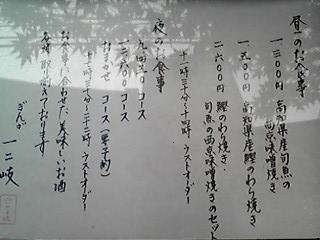 昼のお食事
一、三〇〇 高知県産旬魚の
西京味噌焼き
一、五〇〇 高知県産鰹のわら焼き
二、六〇〇 鰹のわら焼き・
旬魚の西京味噌焼きのセット
十一時三十分〜十四時 ラストオーダー
夜のお食事
コース
コース
おまかせ コース (要予約)
十七時三十分〜二十二時 ラストオーダー
お食事に合わせた美味しいお酒
各種取り揃えております
ぎんざ 一二岐